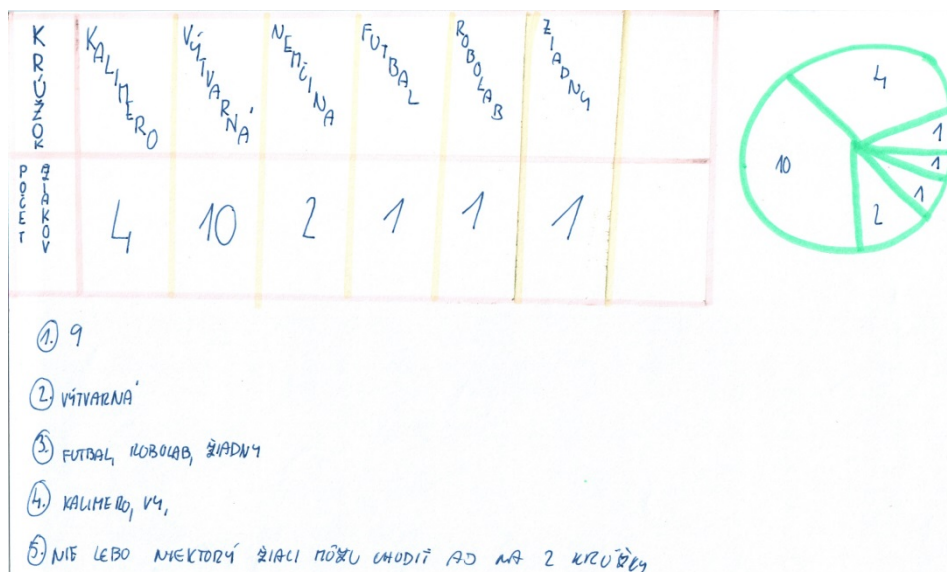 KRÚŽOK KALIMERO VÝTVARNÁ NEMČINA FUTBAL ROBOLAB ŽIADNY
POČET ŽIAKOV 4 10 2 1 1 1
4
1
1
1
2
10
1. 9
2. VÝTVARNÁ
3. FUTBAL, ROBOLAB, ŽIADNY
4. KALIMERO, VÝ,
5. NIE LEBO NIEKTORÝ ŽIALI MÔŽU CHODIŤ AJ NA 2 KRÚŽKY